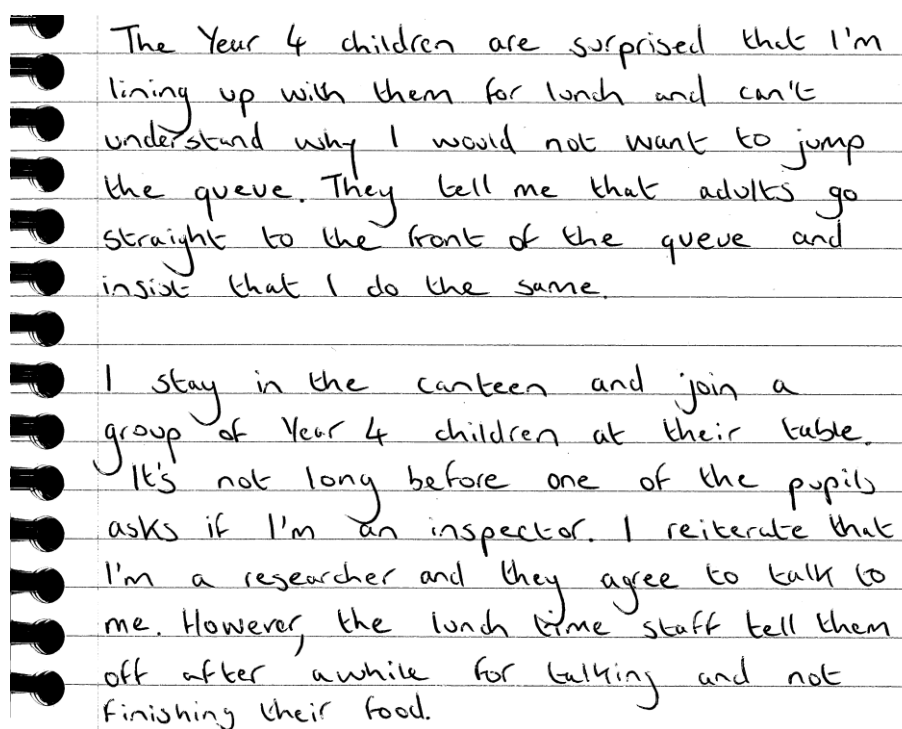 The Year 4 children are surprised that I'm
lining up with them for lunch and can't
understand why I would not want to jump
the queue. They tell me that adults go
straight to the front of the queue and
insist that I do the same.
I stay in the canteen and join a
group of Year 4 children at their table.
It's not long before one of the pupils
asks if I'm an inspector. I reiterate that
I'm a researcher and they agree to talk to
me. However, the lunch time staff tell them
off after awhile for talking and not
finishing their food.